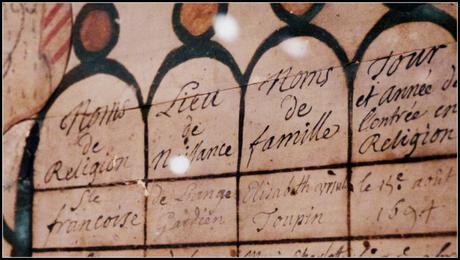 Noms
de
Religion
Lieu
de
Naissance
Noms
de
famille
Jour
et année de
l'entrée en
Religion
Ste
françoise
de L'ange
Gardien
Elizabeth
Toupin
le 15e août
1694